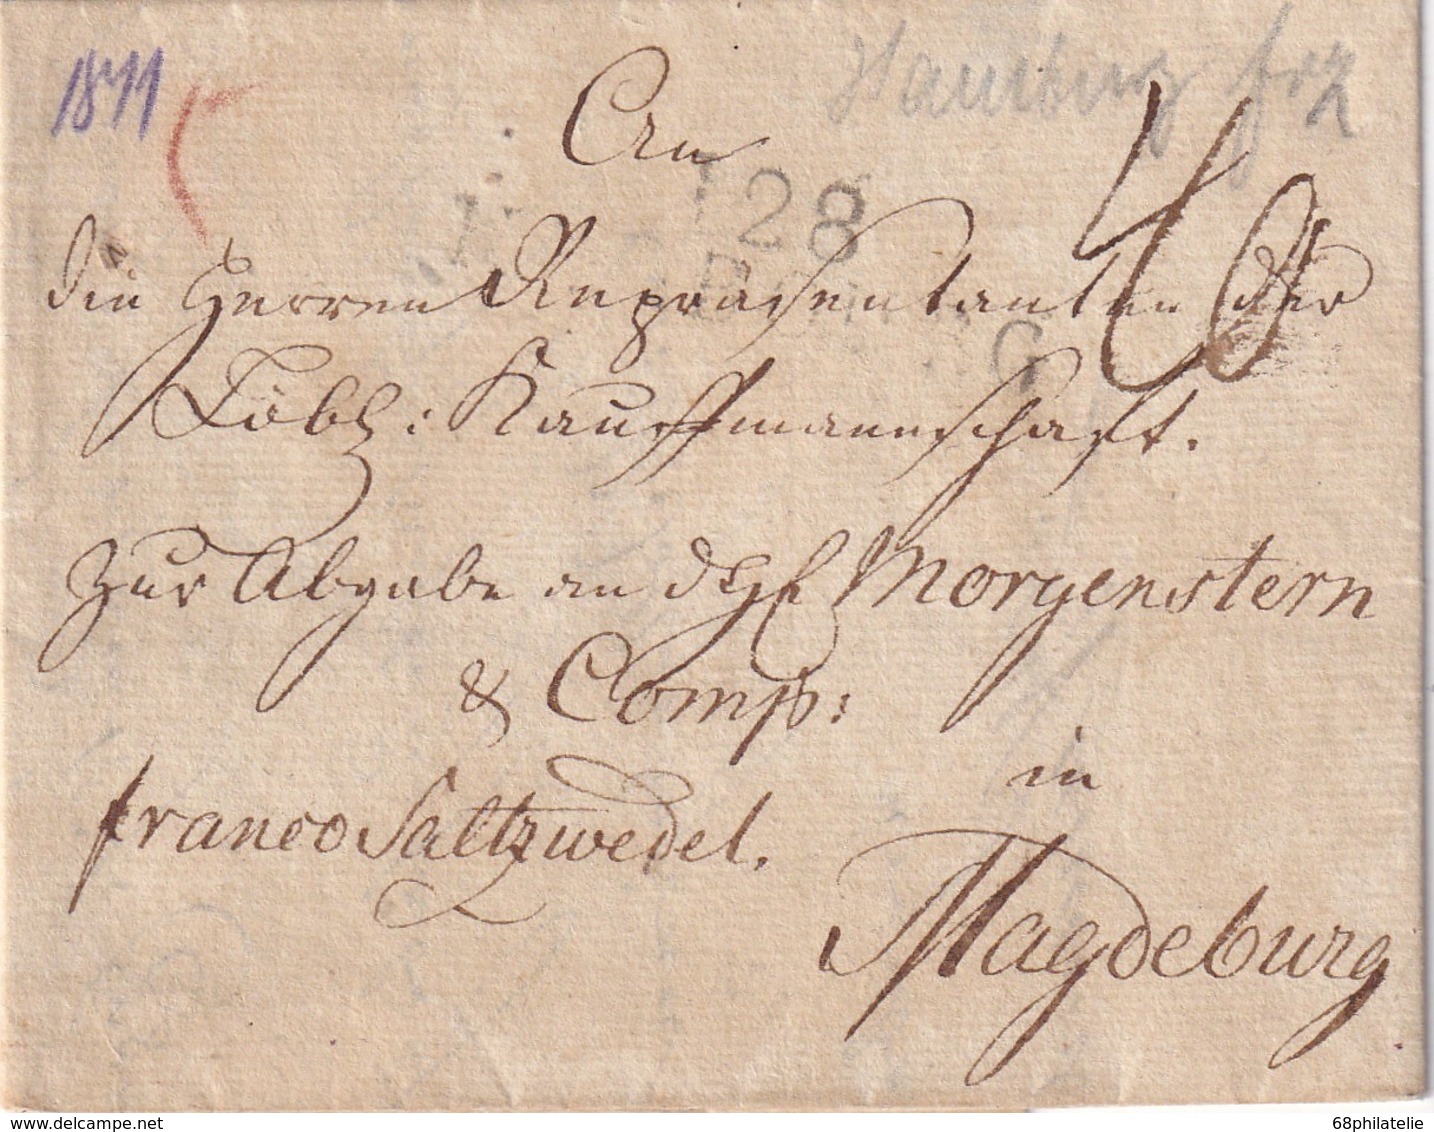 1811
Hamburg frz
An
128
die Herren Repräsentanten der
G
Löbl: Kauffmannschaft.
zur Abgabe an dHl Morgenstern
& Comp:
in
franco Saltzwedel.
Magdeburg
www.delcampe.net
68philatelie